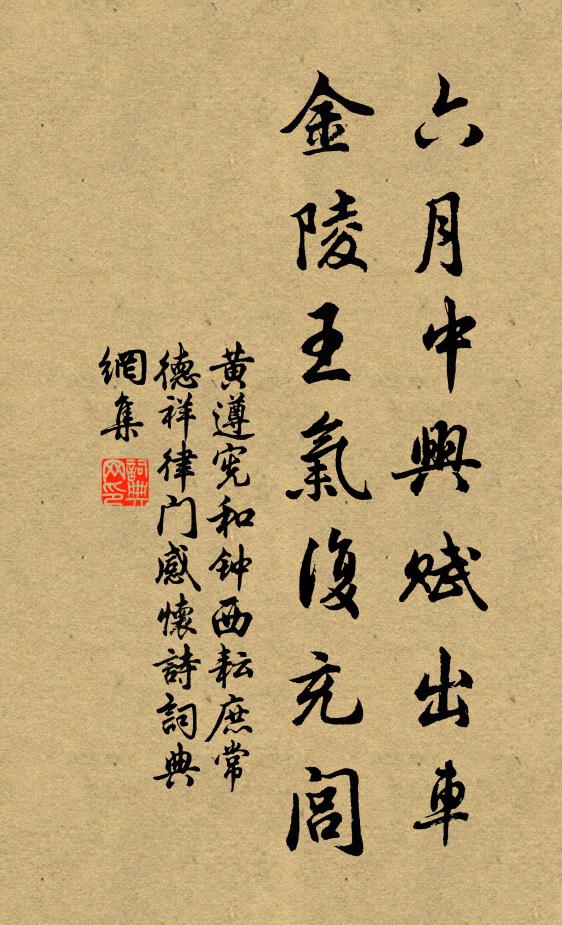 六月中興賦出車
金陵王氣復充閭
黄遵宪和钟西耘庶常
德祥律门感懷詩詞典
網集
詞典
网印